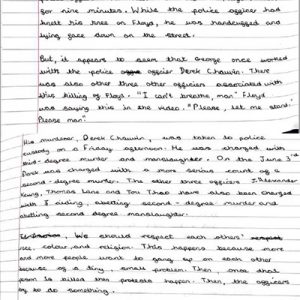 for nine minutes. While the police officer had
knelt his knee on Floyd, he was handcuffed and
lying face down on the street.
But, it appears to seem that George once worked
with the police officer Derek Chauvin. There
was also other three other officers associated with
this killing of Floyd. "I can't breathe, man" Floyd
was saying this in the video. "Please, let me stand.
Please man".
His murderer, Derek Chauvin, was taken to police
custody on a Friday afternoon. He was charged with
third-degree murder and manslaughter. On the June 3rd
Derek was charged with a more serious count of a
second-degree murder. The other three officers J.Alexander
Kueng, Thomas Lane and Tou Thao have also been charged
with aiding, abetting second-degree murder and
abetting second degree manslaughter.
We should respect each others'
race, colour, and religion. This happens because more
and more people want to gang up on each other
because of a tiny, small problem. Then, once that
person is killed then protests happen. Then, the officers
try to do something.